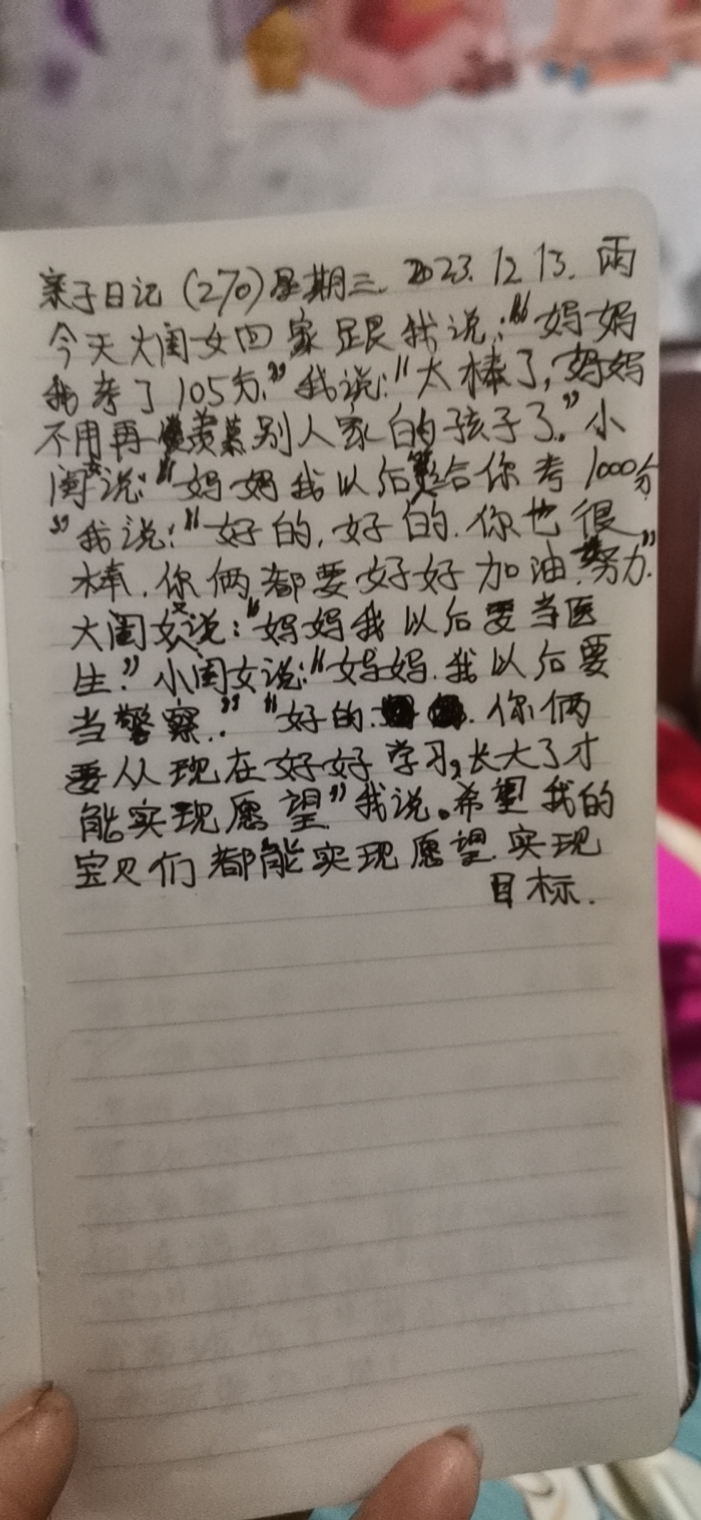 亲子日记(270)星期三. 2023.12.13.雨
今天大闺女回家跟我说:“妈妈
我考了105分.”我说:“太棒了,妈妈
不用再羡慕别人家的孩子了.”小
闺女说:“妈妈我以后给你考1000分
”我说:“好的,好的.你也很
棒.你俩都要好好加油.努力.”
大闺女说:“妈妈我以后要当医
生.”小闺女说:“妈妈.我以后要
当警察.”“好的.你俩
要从现在好好学习,长大了才
能实现愿望”我说。希望我的
宝贝们都能实现愿望.实现
目标.